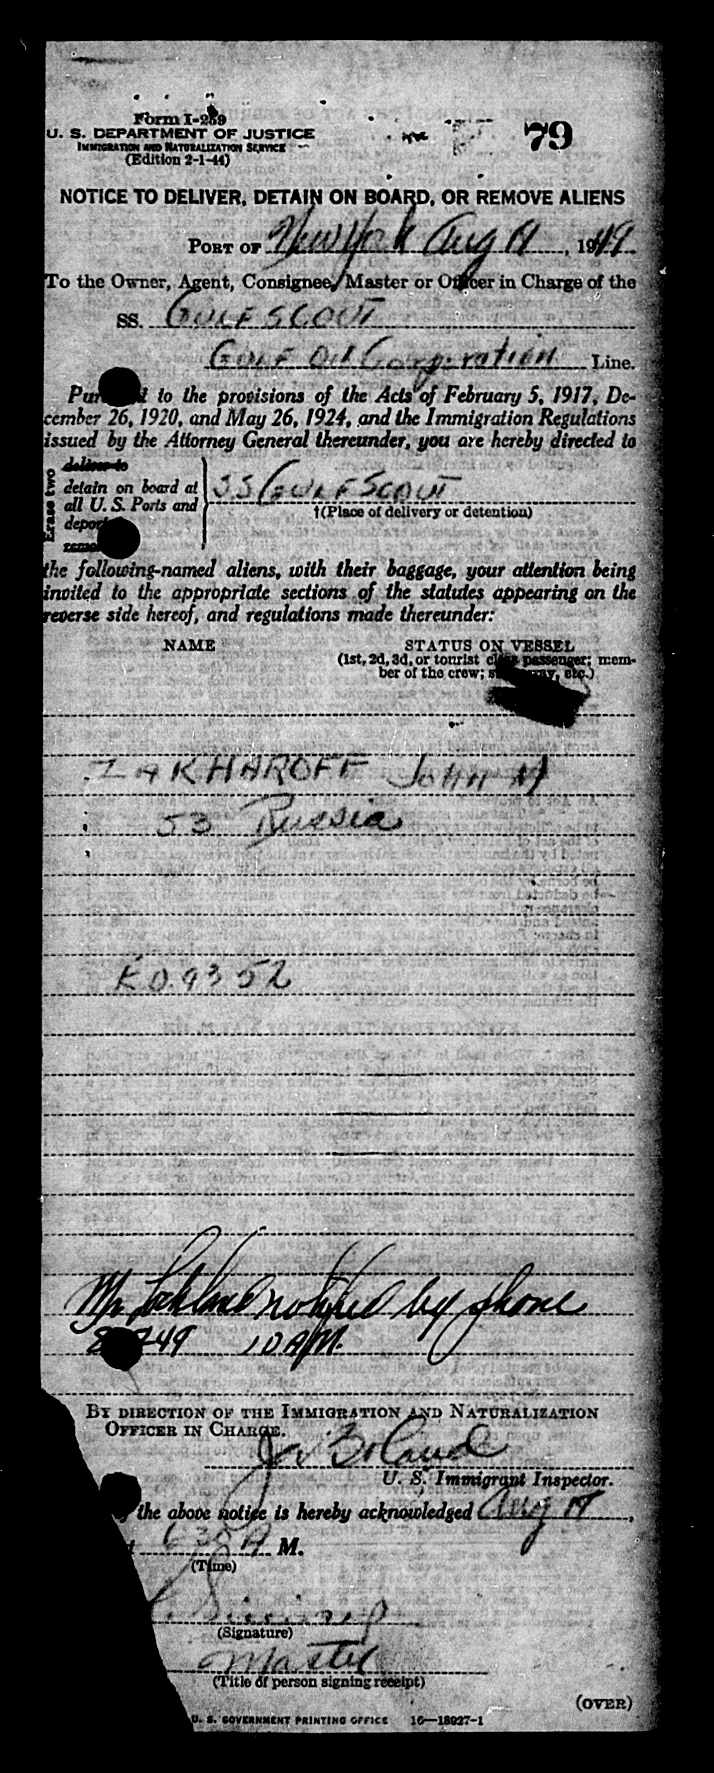 Form I-259
U. S. DEPARTMENT OF JUSTICE
IMMIGRATION AND NATURALIZATION SERVICE
(Edition 2-1-44)
79
NOTICE TO DELIVER, DETAIN ON BOARD, OR REMOVE ALIENS
PORT OF New York Aug 19, 1949
To the Owner, Agent, Consignee, Master or Officer in Charge of the
SS. GULF SCOUT
GULF Oil Corporation Line.
to the provisions of the Acts of February 5, 1917, De-
cember 26, 1920, and May 26, 1924, and the Immigration Regulations
issued by the Attorney General thereunder, you are hereby directed to
Erase two
deliver to
detain on board at
all U. S. Ports and
SS GULF SCOUT
†(Place of delivery or detention)
the following-named aliens, with their baggage, your attention being
invited to the appropriate sections of the statutes appearing on the
reverse side hereof, and regulations made thereunder:
NAME
STATUS ON VESSEL
(1st, 2d, 3d, or tourist class passenger; mem-
ber of the crew; etc.)
ZAKHAROFF John M
53 Russia
9352
Mr. notified by phone
49 10 AM.
BY DIRECTION OF THE IMMIGRATION AND NATURALIZATION
OFFICER IN CHARGE.
Boland
U. S. Immigrant Inspector.
the above notice is hereby acknowledged Aug 19,
635 A M.
(Time)
(Signature)
Master
(Title of person signing receipt)
(OVER)
U. S. GOVERNMENT PRINTING OFFICE 16—18927-1